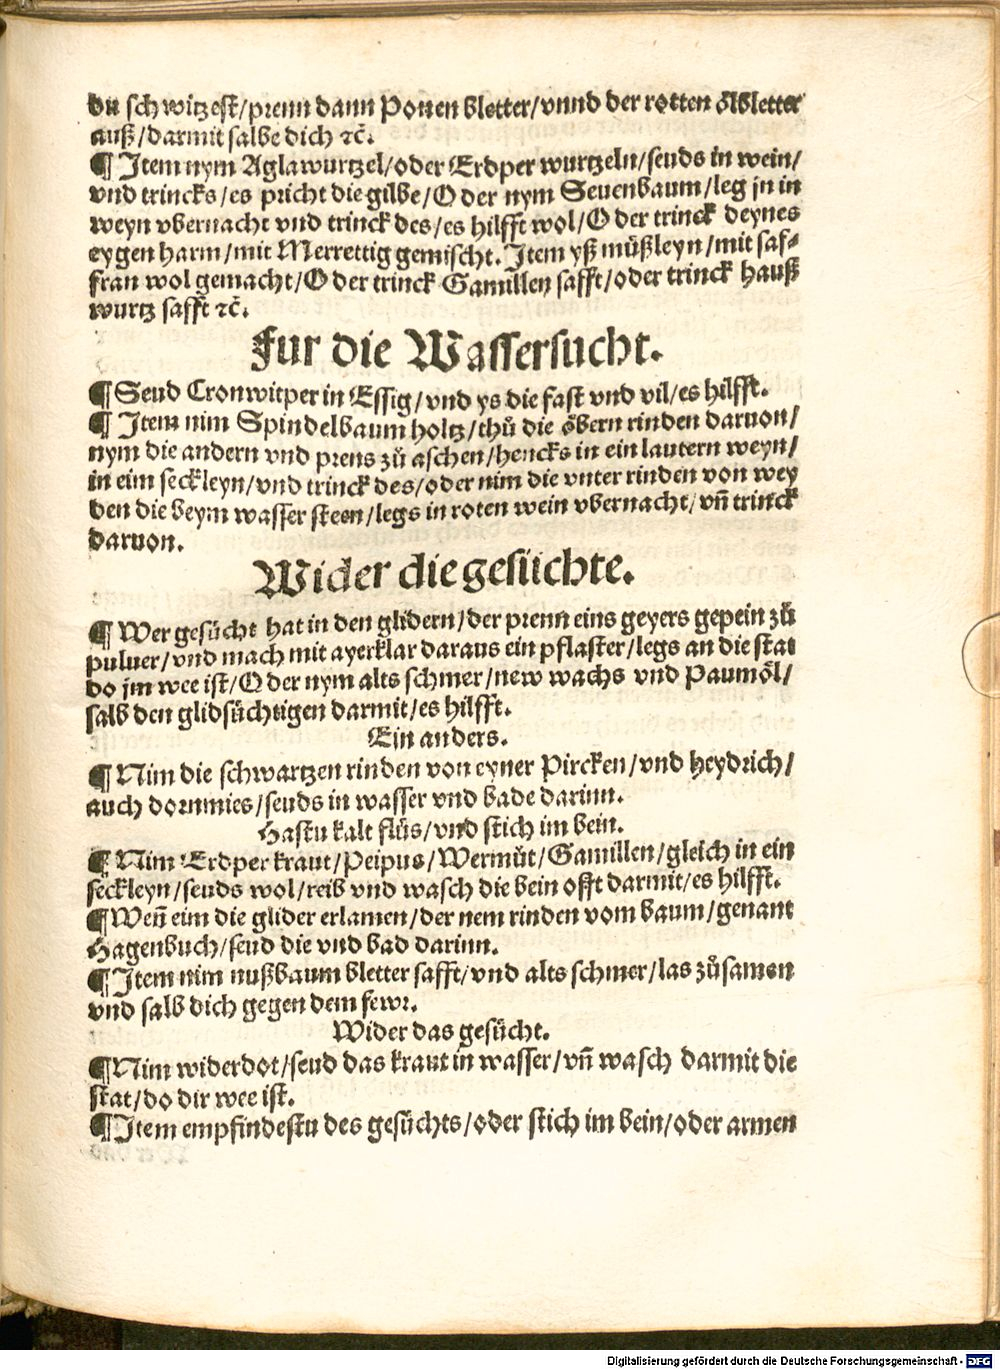 du schwitzest/prenn dann Ponen bletter/vnnd der rotten ölbletter
auß/darmit salbe dich ⁊c̃.
¶ Item nym Aglawurtzel/oder Erdper wurtzeln/seuds in wein/
vnd trincks/es pricht die gilbe/Oder nym Seuenbaum/leg jn in
weyn vbernacht vnd trinck des/es hilfft wol/Oder trinck deynes
eygen harm/mit Merrettig gemischt. Item yß müßleyn/mit saf⸗
fran wol gemacht/Oder trinck Gamillen safft/oder trinck hauß
wurtz safft ⁊c̃.
Fur die Wassersucht.
¶ Seud Cronwitper in Essig/vnd ys die fast vnd vil/es hilfft.
¶ Item nim Spindelbaum holtz/thů die öbern rinden daruon/
nym die andern vnd prens zů aschen/hencks in ein lautern weyn/
in eim seckleyn/vnd trinck des/oder nim die vnter rinden von wey
den die beym wasser steen/legs in roten wein vbernacht/vñ trinck
daruon.
Wider die gesüchte.
¶ Wer gesücht hat in den glidern/der prenn eins geyers gepein zů
puluer/vnd mach mit ayerklar daraus ein pflaster/legs an die stat
do jm wee ist/Oder nym alts schmer/new wachs vnd Paumöl/
salb den glidsüchtigen darmit/es hilfft.
Ein anders.
¶ Nim die schwartzen rinden von eyner Pircken/vnd heydrich/
auch dornmies/seuds in wasser vnd bade darinn.
Hastu kalt flüs/vnd stich im bein.
¶ Nim Erdper kraut/Peipus/Wermůt/Gamillen/gleich in ein
seckleyn/seuds wol/reib vnd wasch die bein offt darmit/es hilfft.
¶ Weñ eim die glider erlamen/der nem rinden vom baum/genant
Hagenbuch/seud die vnd bad darinn.
¶ Item nim nußbaum bletter safft/vnd alts schmer/las zůsamen
vnd salb dich gegen dem fewr.
Wider das gesücht.
¶ Nim widerdot/seud das kraut in wasser/vñ wasch darmit die
stat/do dir wee ist.
¶ Item empfindestu des gesüchts/oder stich im bein/oder armen
Digitalisierung gefördert durch die Deutsche Forschungsgemeinschaft - DFG